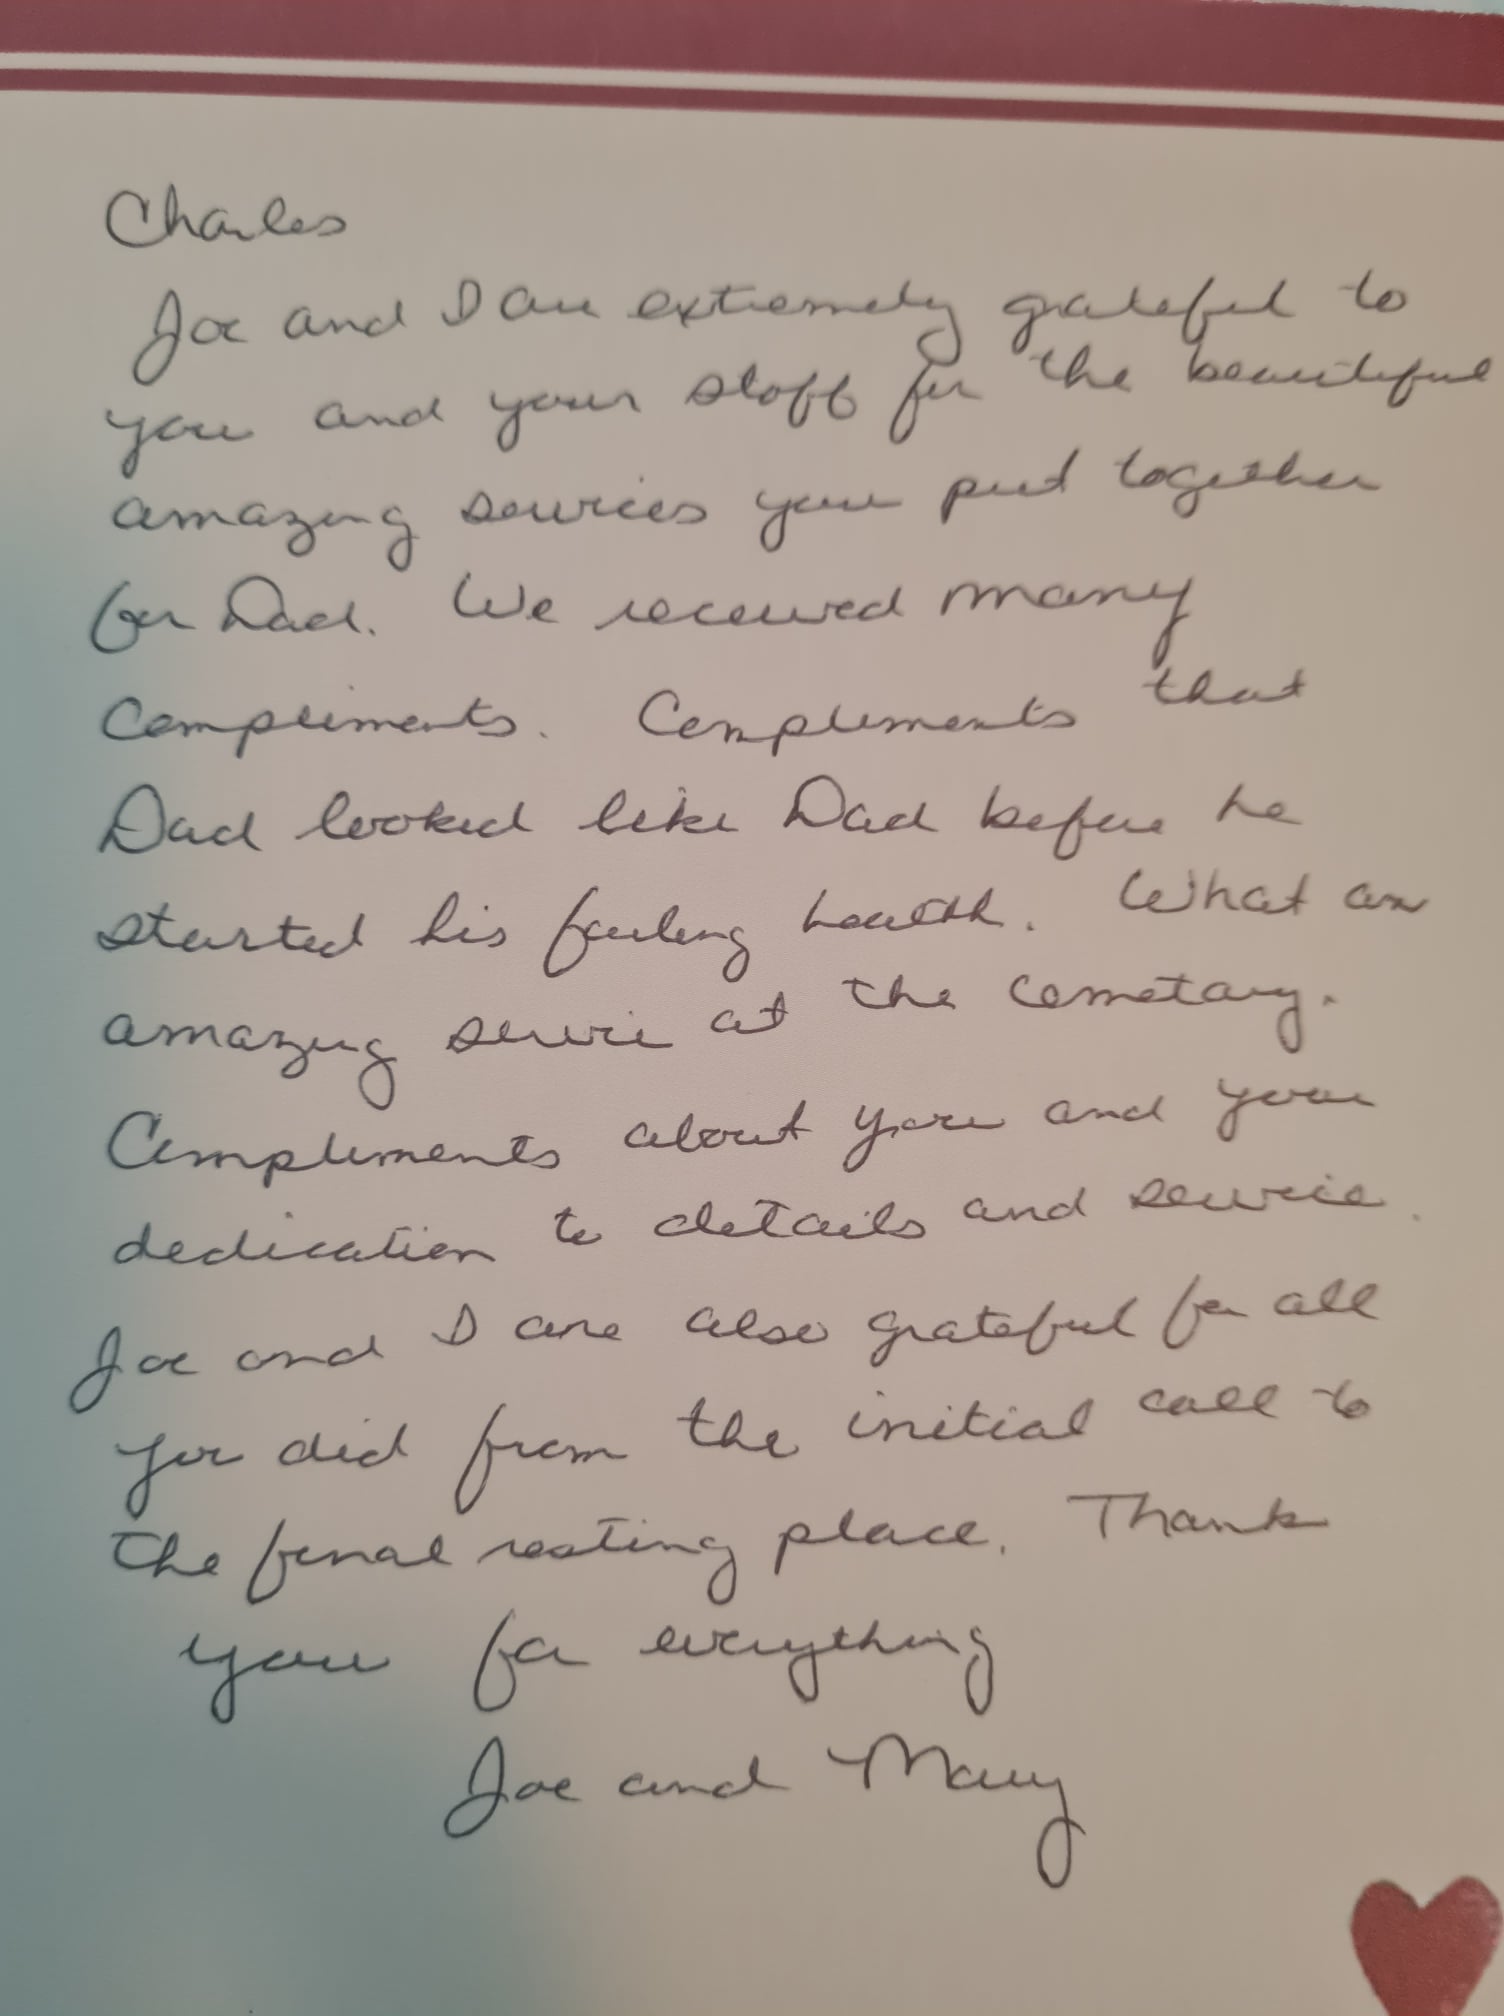 Charles
Joe and I are extremely grateful to
you and your staff for the beautiful
amazing services you put together
for Dad. We received many
Compliments. Compliments that
Dad looked like Dad before he
started his failing health. What an
amazing service at the cemetary.
Compliments about you and your
dedication to details and service.
Joe and I are also grateful for all
you did from the initial call to
the final resting place. Thank
you for everything
Joe and Mary